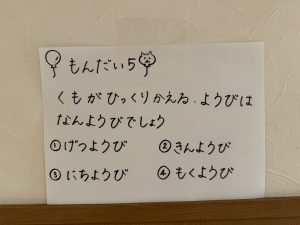 もんだい5
くもがひっくりかえる．ようびは
なんようびでしょう
①げつようび ②きんようび
③にちようび ④もくようび